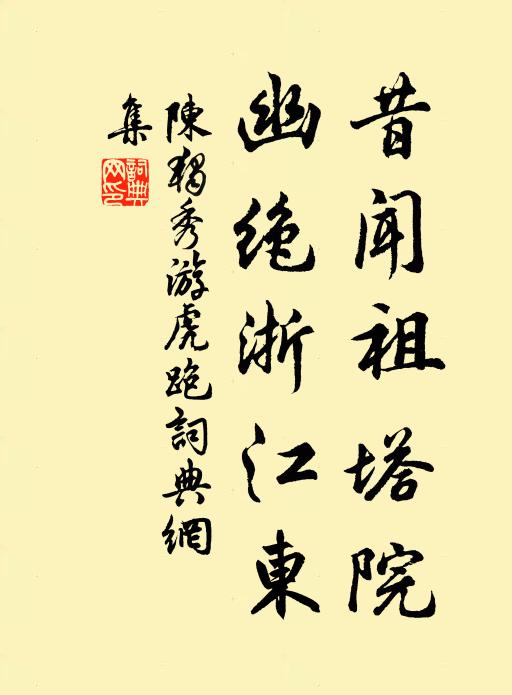 昔闻祖塔院
幽绝浙江東
陳獨秀游虎跑詞典網
集
詞典网印